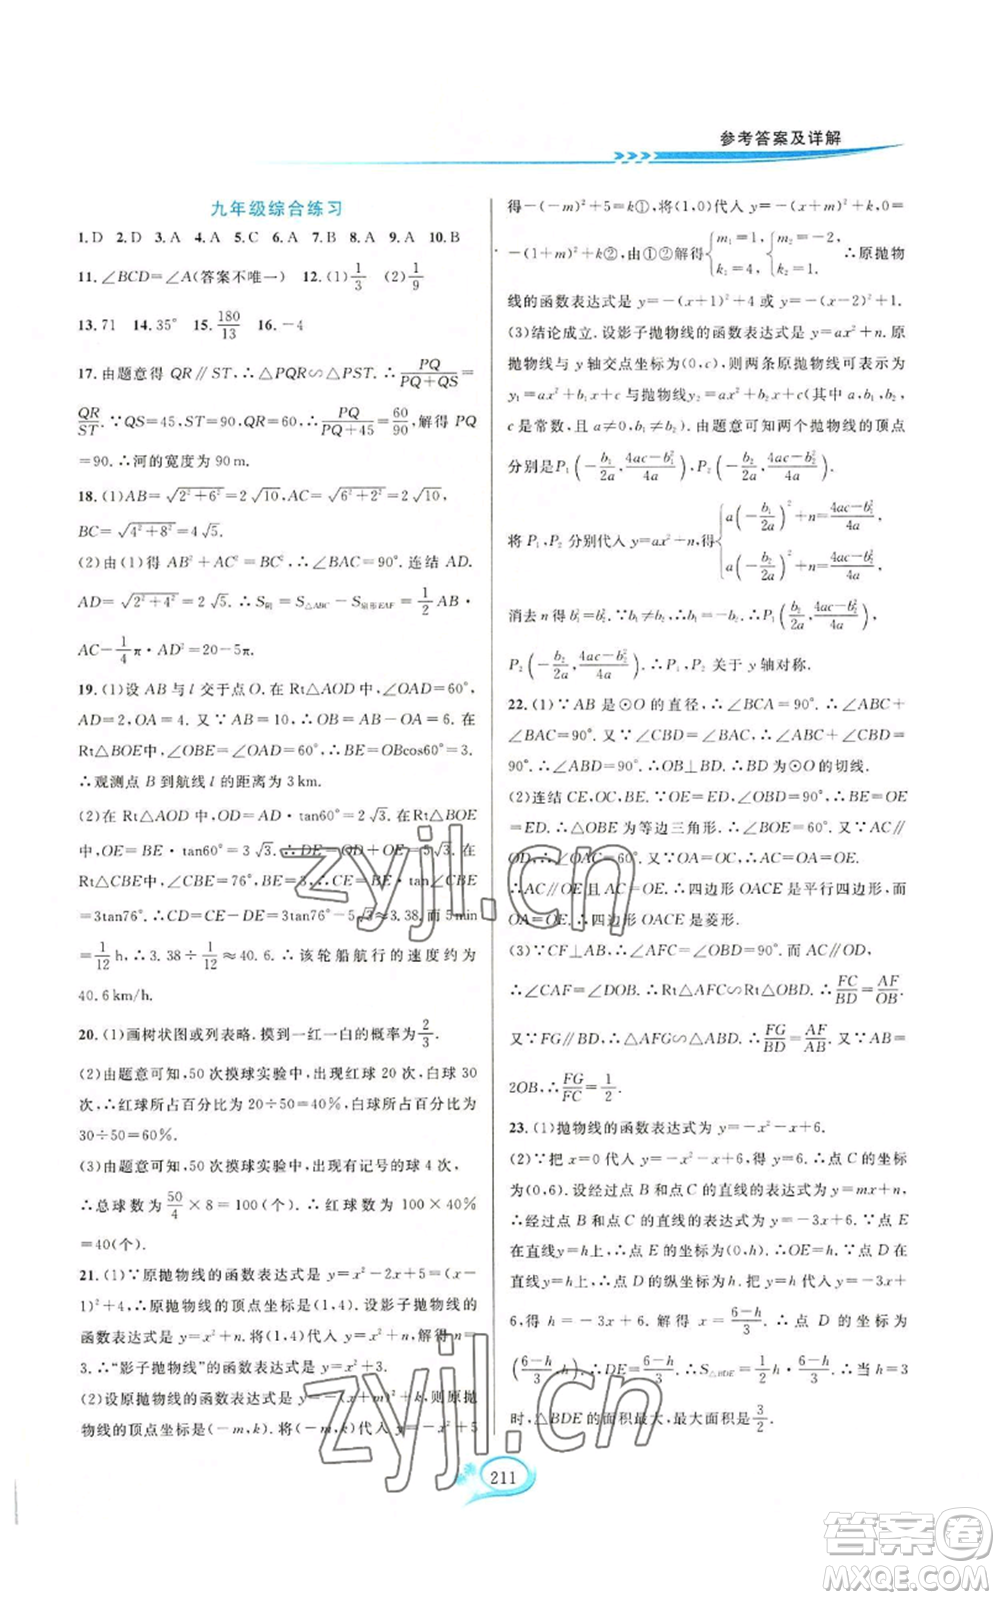 参考答案及详解
九年级综合练习
1.D 2.D 3.A 4.A 5.C 6.A 7.B 8.A 9.A 10.B
11.∠BCD=∠A(答案不唯一) 12.(1)1/3 (2)1/9
13.71 14.35° 15.180/13 16.-4
17.由题意得 QR∥ST,∴△PQR∽△PST.∴PQ/(PQ+QS)=
QR/ST.∵QS=45,ST=90,QR=60,∴PQ/(PQ+45)=60/90,解得 PQ
=90.∴河的宽度为 90 m.
18.(1)AB=√(2²+6²)=2√10,AC=√(6²+2²)=2√10,
BC=√(4²+8²)=4√5.
(2)由(1)得 AB²+AC²=BC²,∴∠BAC=90°.连结 AD.
AD=√(2²+4²)=2√5,∴S阴=S△ABC-S扇形EAF=1/2 AB·
AC-1/4 π·AD²=20-5π.
19.(1)设 AB 与 l 交于点 O.在 Rt△AOD 中,∠OAD=60°,
AD=2,OA=4.又∵AB=10,∴OB=AB-OA=6.在
Rt△BOE中,∠OBE=∠OAD=60°,∴BE=OBcos60°=3.
∴观测点 B 到航线 l 的距离为 3 km.
(2)在 Rt△AOD 中,OD=AD·tan60°=2√3.在 Rt△BOE
中,OE=BE·tan60°=3√3.∴DE=OD+OE=5√3.在
Rt△CBE中,∠CBE=76°,BE=3,∴CE=BE·tan∠CBE=
3tan76°.∴CD=CE-DE=3tan76°-5√3≈3.38,而 5 min
=1/12 h,∴3.38÷1/12≈40.6.∴该轮船航行的速度约为
40.6 km/h.
20.(1)画树状图或列表略.摸到一红一白的概率为2/3.
(2)由题意可知,50 次摸球实验中,出现红球 20 次,白球 30
次,∴红球所占百分比为 20÷50=40%,白球所占百分比为
30÷50=60%.
(3)由题意可知,50 次摸球实验中,出现有记号的球 4 次,
∴总球数为50/4×8=100(个).∴红球数为 100×40%
=40(个).
21.(1)∵原抛物线的函数表达式是 y=x²-2x+5=(x-
1)²+4,∴原抛物线的顶点坐标是(1,4).设影子抛物线的
函数表达式为 y=x²+n.将(1,4)代入 y=x²+n,解得 n=
3.∴“影子抛物线”的函数表达式是 y=x²+3.
(2)设原抛物线的函数表达式是 y=-(x+m)²+k,则原抛
物线的顶点坐标是(-m,k).将(-m,k)代入 y=-x²+5
得-(-m)²+5=k①,将(1,0)代入 y=-(x+m)²+k,0
=-(1+m)²+k②,由①②解得{m₁=1, k₁=4,{m₂=-2, k₂=1.∴原抛物
线的函数表达式是 y=-(x+1)²+4 或 y=-(x-2)²+1.
(3)结论成立.设影子抛物线的函数表达式是 y=ax²+n.原
抛物线与 y 轴交点坐标为(0,c),则两条原抛物线可表示为
y₁=ax²+b₁x+c 与抛物线y₂=ax²+b₂x+c(其中 a,b₁,b₂,
c 是常数,且 a≠0,b₁≠b₂).由题意可知两个抛物线的顶点
分别是P₁(-b₁/2a,(4ac-b₁²)/4a),P₂(-b₂/2a,(4ac-b₂²)/4a).
将 P₁,P₂ 分别代入 y=ax²+n,得{a(-b₁/2a)²+n=(4ac-b₁²)/4a, a(-b₂/2a)²+n=(4ac-b₂²)/4a,
消去 n 得 b₁²=b₂².∵b₁≠b₂,∴b₁=-b₂.∴P₁(b₂/2a,(4ac-b₂²)/4a),
P₂(-b₂/2a,(4ac-b₂²)/4a).∴P₁,P₂ 关于 y 轴对称.
22.(1)∵AB 是⊙O 的直径,∴∠BCA=90°.∴∠ABC+
∠BAC=90°.又∵∠CBD=∠BAC,∴∠ABC+∠CBD=
90°.∴∠ABD=90°.∴OB⊥BD.∴BD为⊙O的切线.
(2)连结 CE,OC,BE.∵OE=ED,∠OBD=90°,∴BE=OE
=ED.∴△OBE 为等边三角形.∴∠BOE=60°.又∵AC∥
OD,∴∠OAC=60°.又∵OA=OC,∴AC=OA=OE.
∴AC∥OE 且 AC=OE.∴四边形 OACE 是平行四边形.而
OA=OE,∴四边形 OACE 是菱形.
(3)∵CF⊥AB,∴∠AFC=∠OBD=90°.而 AC∥OD,
∴∠CAF=∠DOB.∴Rt△AFC∽Rt△OBD.∴FC/BD=AF/OB.
又∵FG∥BD,∴△AFG∽△ABD.∴FG/BD=AF/AB.又∵AB=
2OB,∴FG/FC=1/2.
23.(1)抛物线的函数表达式为 y=-x²-x+6.
(2)∵把 x=0 代入 y=-x²-x+6,得 y=6,∴点 C 的坐标为
(0,6).设经过点 B 和点 C 的直线的表达式为 y=mx+n,
∴经过点 B 和点C 的直线的表达式为 y=-3x+6.∵点 E
在直线y=h上,∴点 E 的坐标为(0,h).又∵点 D 在
直线y=h上,∴点 D 的纵坐标为 h.把 y=h 代入 y=-3x+
6,得 h=-3x+6.解得 x=(6-h)/3.∴点 D 的坐标为
((6-h)/3,h).∴DE=(6-h)/3.∴S△BDE=1/2 h·(6-h)/3.∴当 h=3
时,△BDE 的面积最大,最大面积是3/2.
211
zyjl.cn
zyjl.cn
答案卷
MXQE.COM